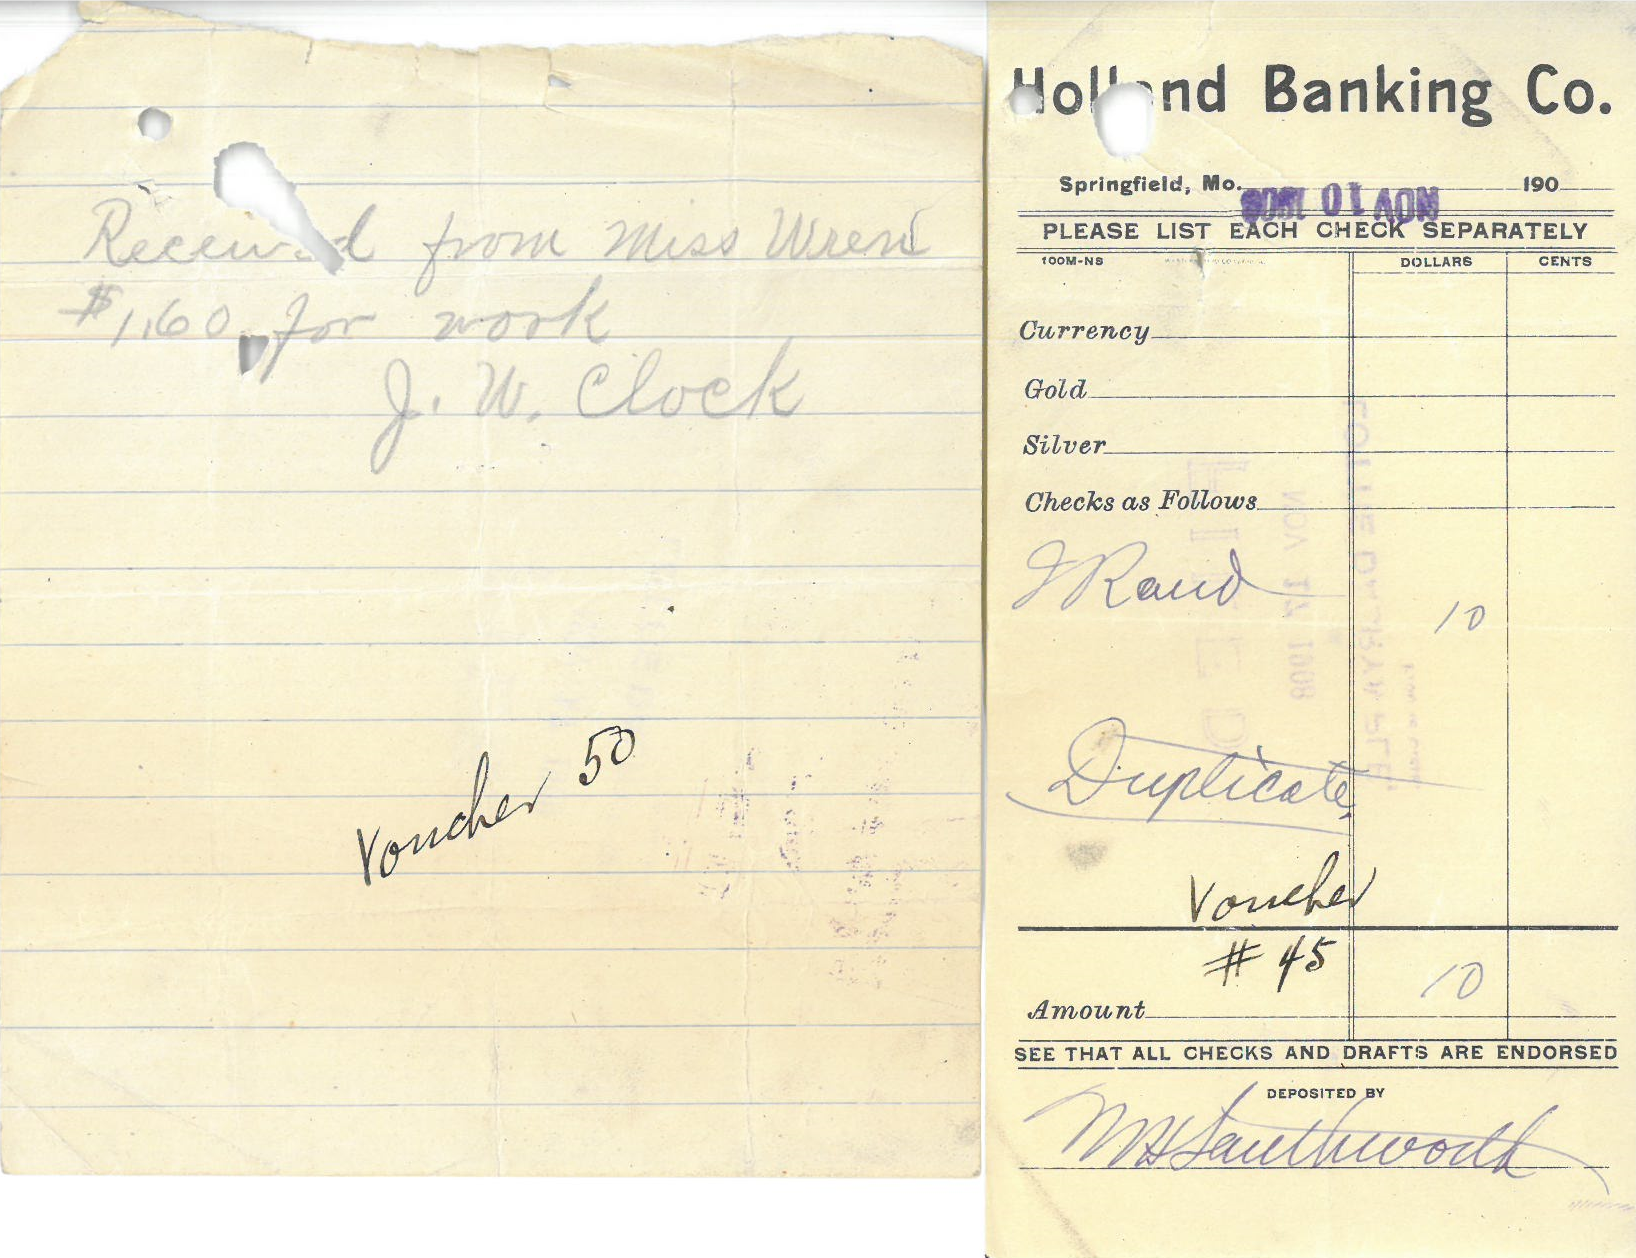 Received from Miss Wren
$1.60 for work
J. W. Clock
Voucher 50
Holland Banking Co.
Springfield, Mo. 190
NOV 10 1908
PLEASE LIST EACH CHECK SEPARATELY
100M-NS
DOLLARS CENTS
Currency
Gold
Silver
Checks as Follows
J Rand
10
Duplicate
Voucher
# 45
10
Amount
SEE THAT ALL CHECKS AND DRAFTS ARE ENDORSED
DEPOSITED BY
MH Southworth